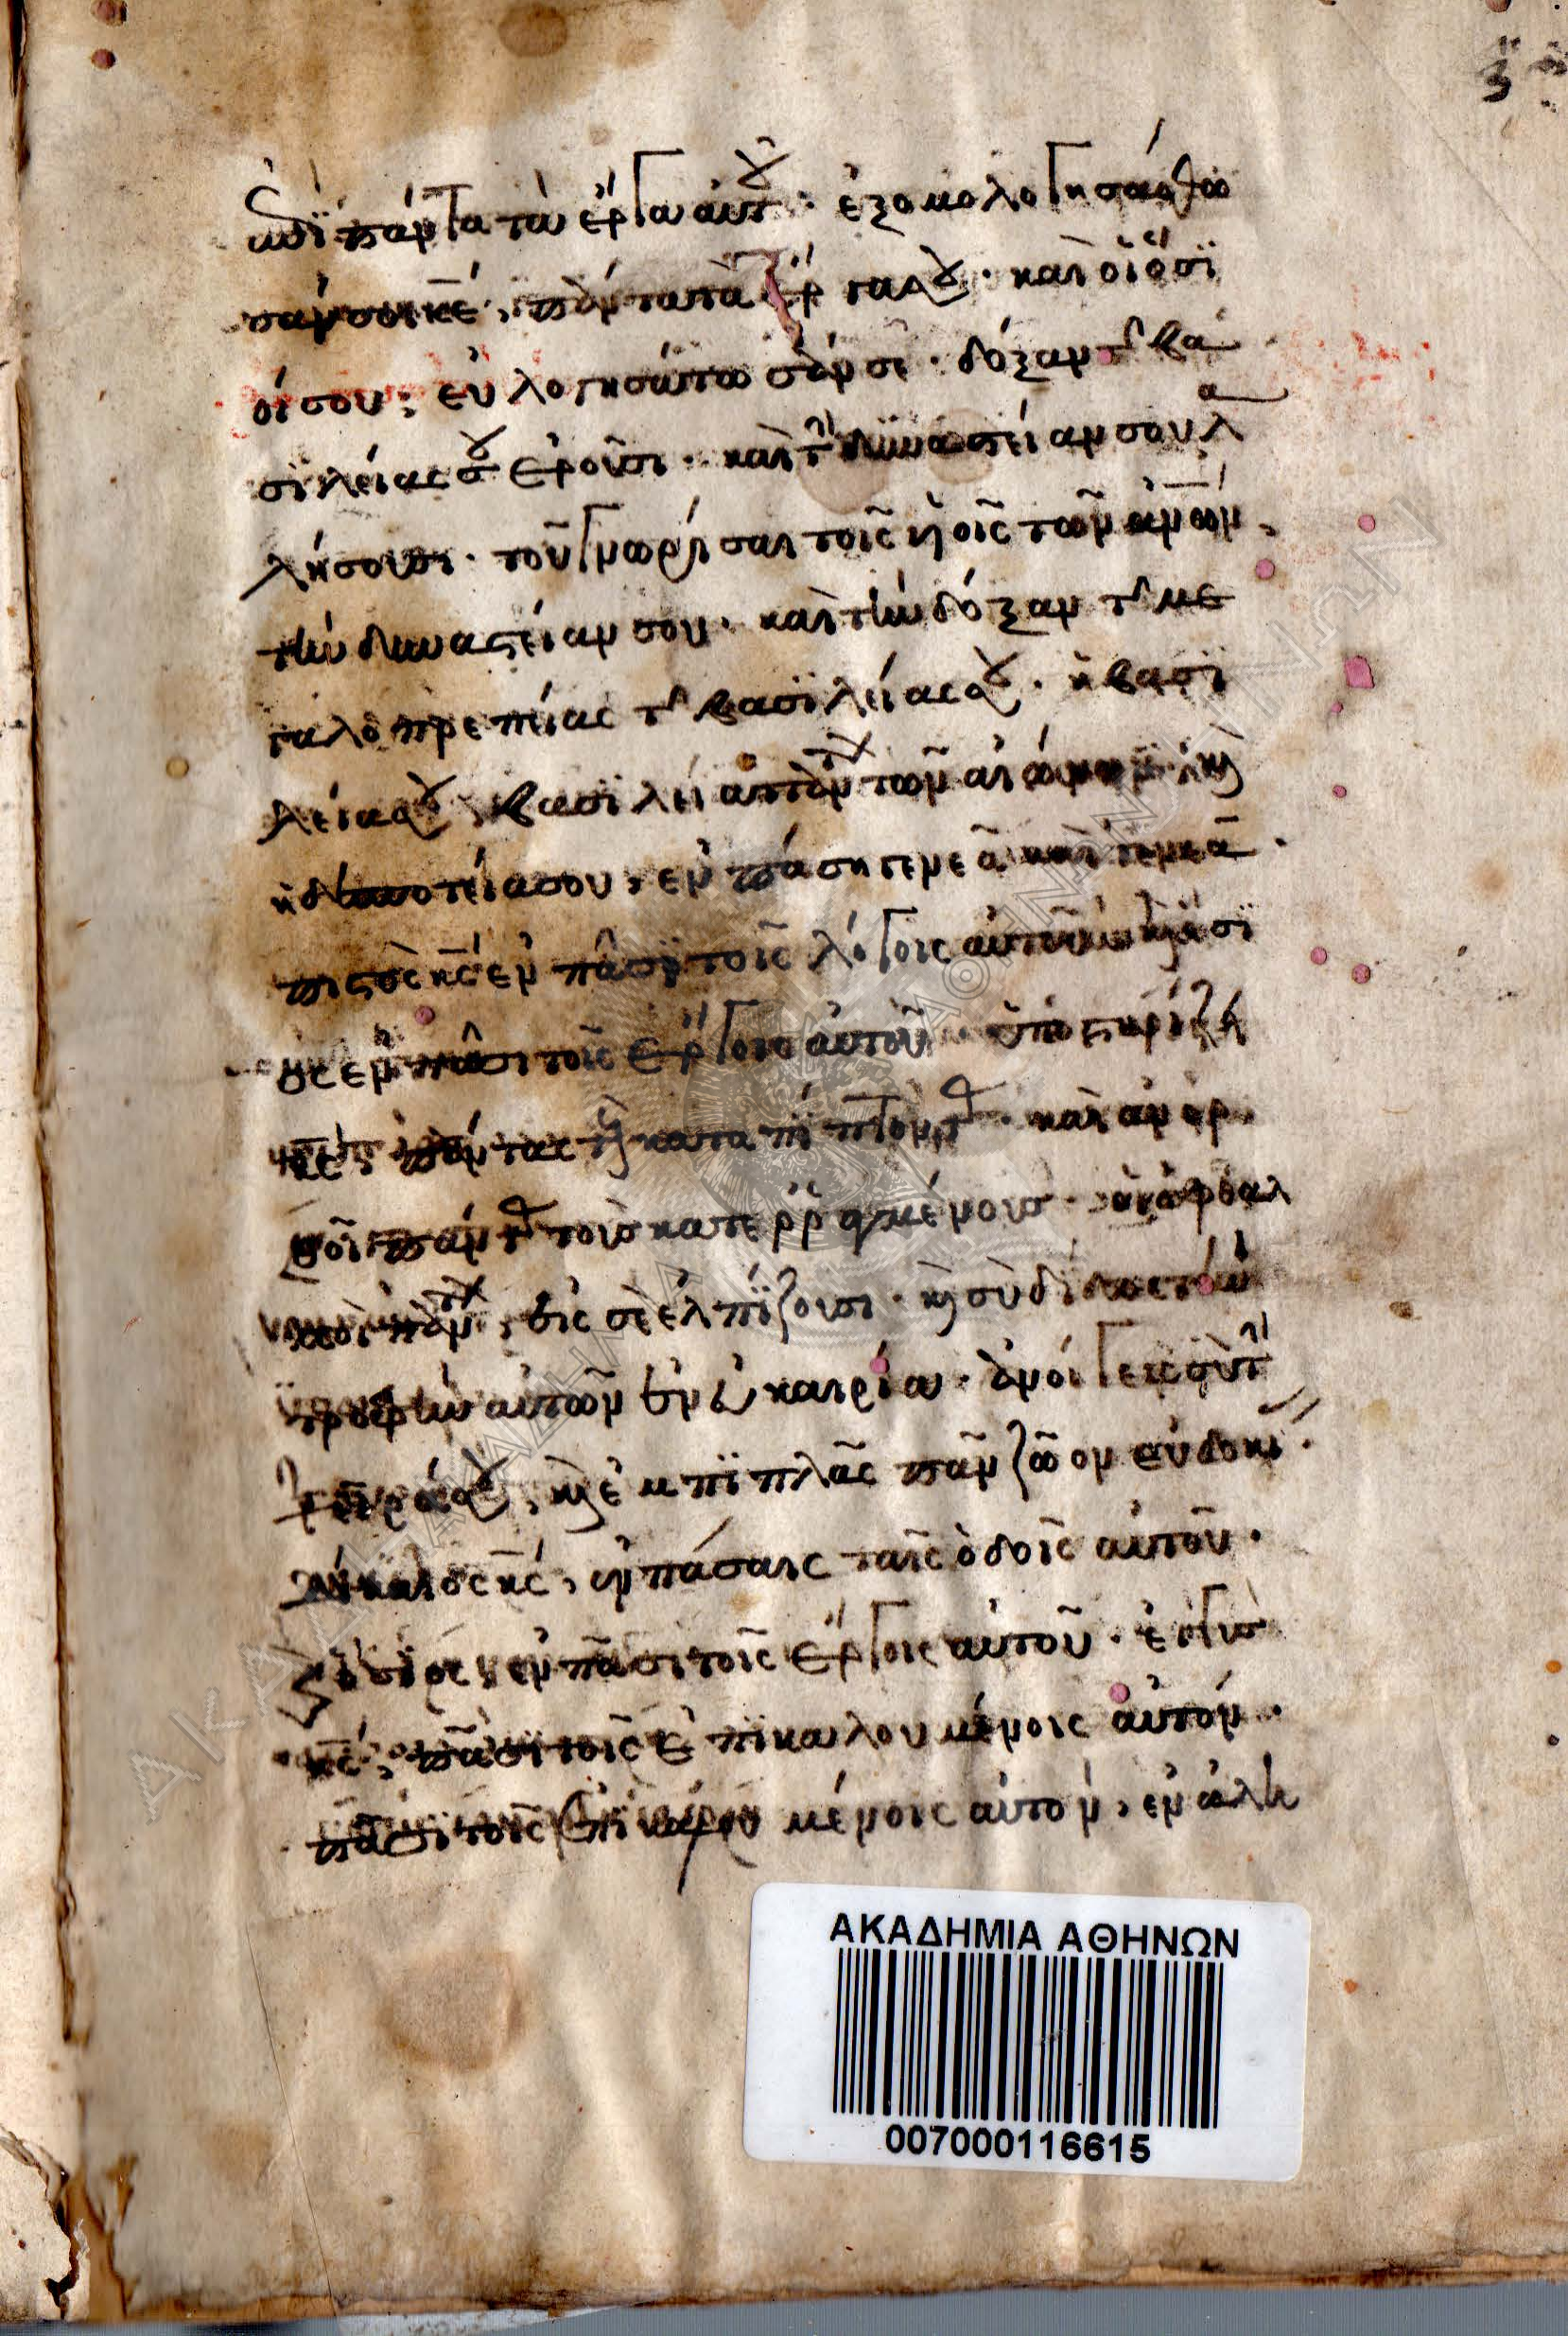 ἐπὶ πάντα τὰ ἔργα αὐτοῦ· ἐξομολογησάσθω
σάν σοι κε, πάντα τὰ ἔργα σου· καὶ οἱ ὅσϊ
οί σου, εὐλογησάτωσάν σε· δόξαν τῆς βα
σϊλείας σου ἐροῦσι· καὶ τὴν δυναστείαν σου λα
λήσουσι· τοῦ γνωρήσαι τοῖς ϋοῖς τῶν ανων,
τὴν δυναστείαν σου· καὶ τὴν δόξαν τῆς με
γαλοπρεπείας τῆς βασϊλείας σου· ἡ βασϊ
λεία σου, βασϊλεία πάντων τῶν αἰώνων· καὶ
ἡ δεσποτεία σου, ἐν πάση γενεᾶ καὶ γενεᾶ·
πιστὸς κς ἐν πᾶσϊ τοῖς λόγοις αὐτοῦ· καὶ ὅσϊ
ος ἐν πᾶσι τοῖς ἔργοις αὐτοῦ· ὑποστηρίζει
κς, πάντας τοὺς καταπίπτοντας· καὶ ἀνορ
θοῖ πάντας τοὺς κατερραγμένους· οἱ ὀφθαλ
μοὶ πάντων, εἰς σὲ ἐλπίζουσι· καὶ σὺ δίδως τὴν
τροφὴν αὐτῶν ἐν εὐκαιρία· ἀνοίγεις σὺ τὴν
χεῖρά σου, καὶ ἐμπϊπλᾶς πᾶν ζῶον εὐδοκί
ας·
δίκαιος κς, ἐν πάσαις ταῖς ὁδοῖς αὐτοῦ·
καὶ ὅσϊος, ἐν πᾶσι τοῖς ἔργοις αὐτοῦ· ἐγγὺς
κς, πᾶσϊ τοῖς ἐπϊκαλουμένοις αὐτόν·
πᾶσι τοῖς ἐπικαλουμένοις αὐτόν, ἐν ἀλη
ΑΚΑΔΗΜΙΑ ΑΘΗΝΩΝ
007000116615